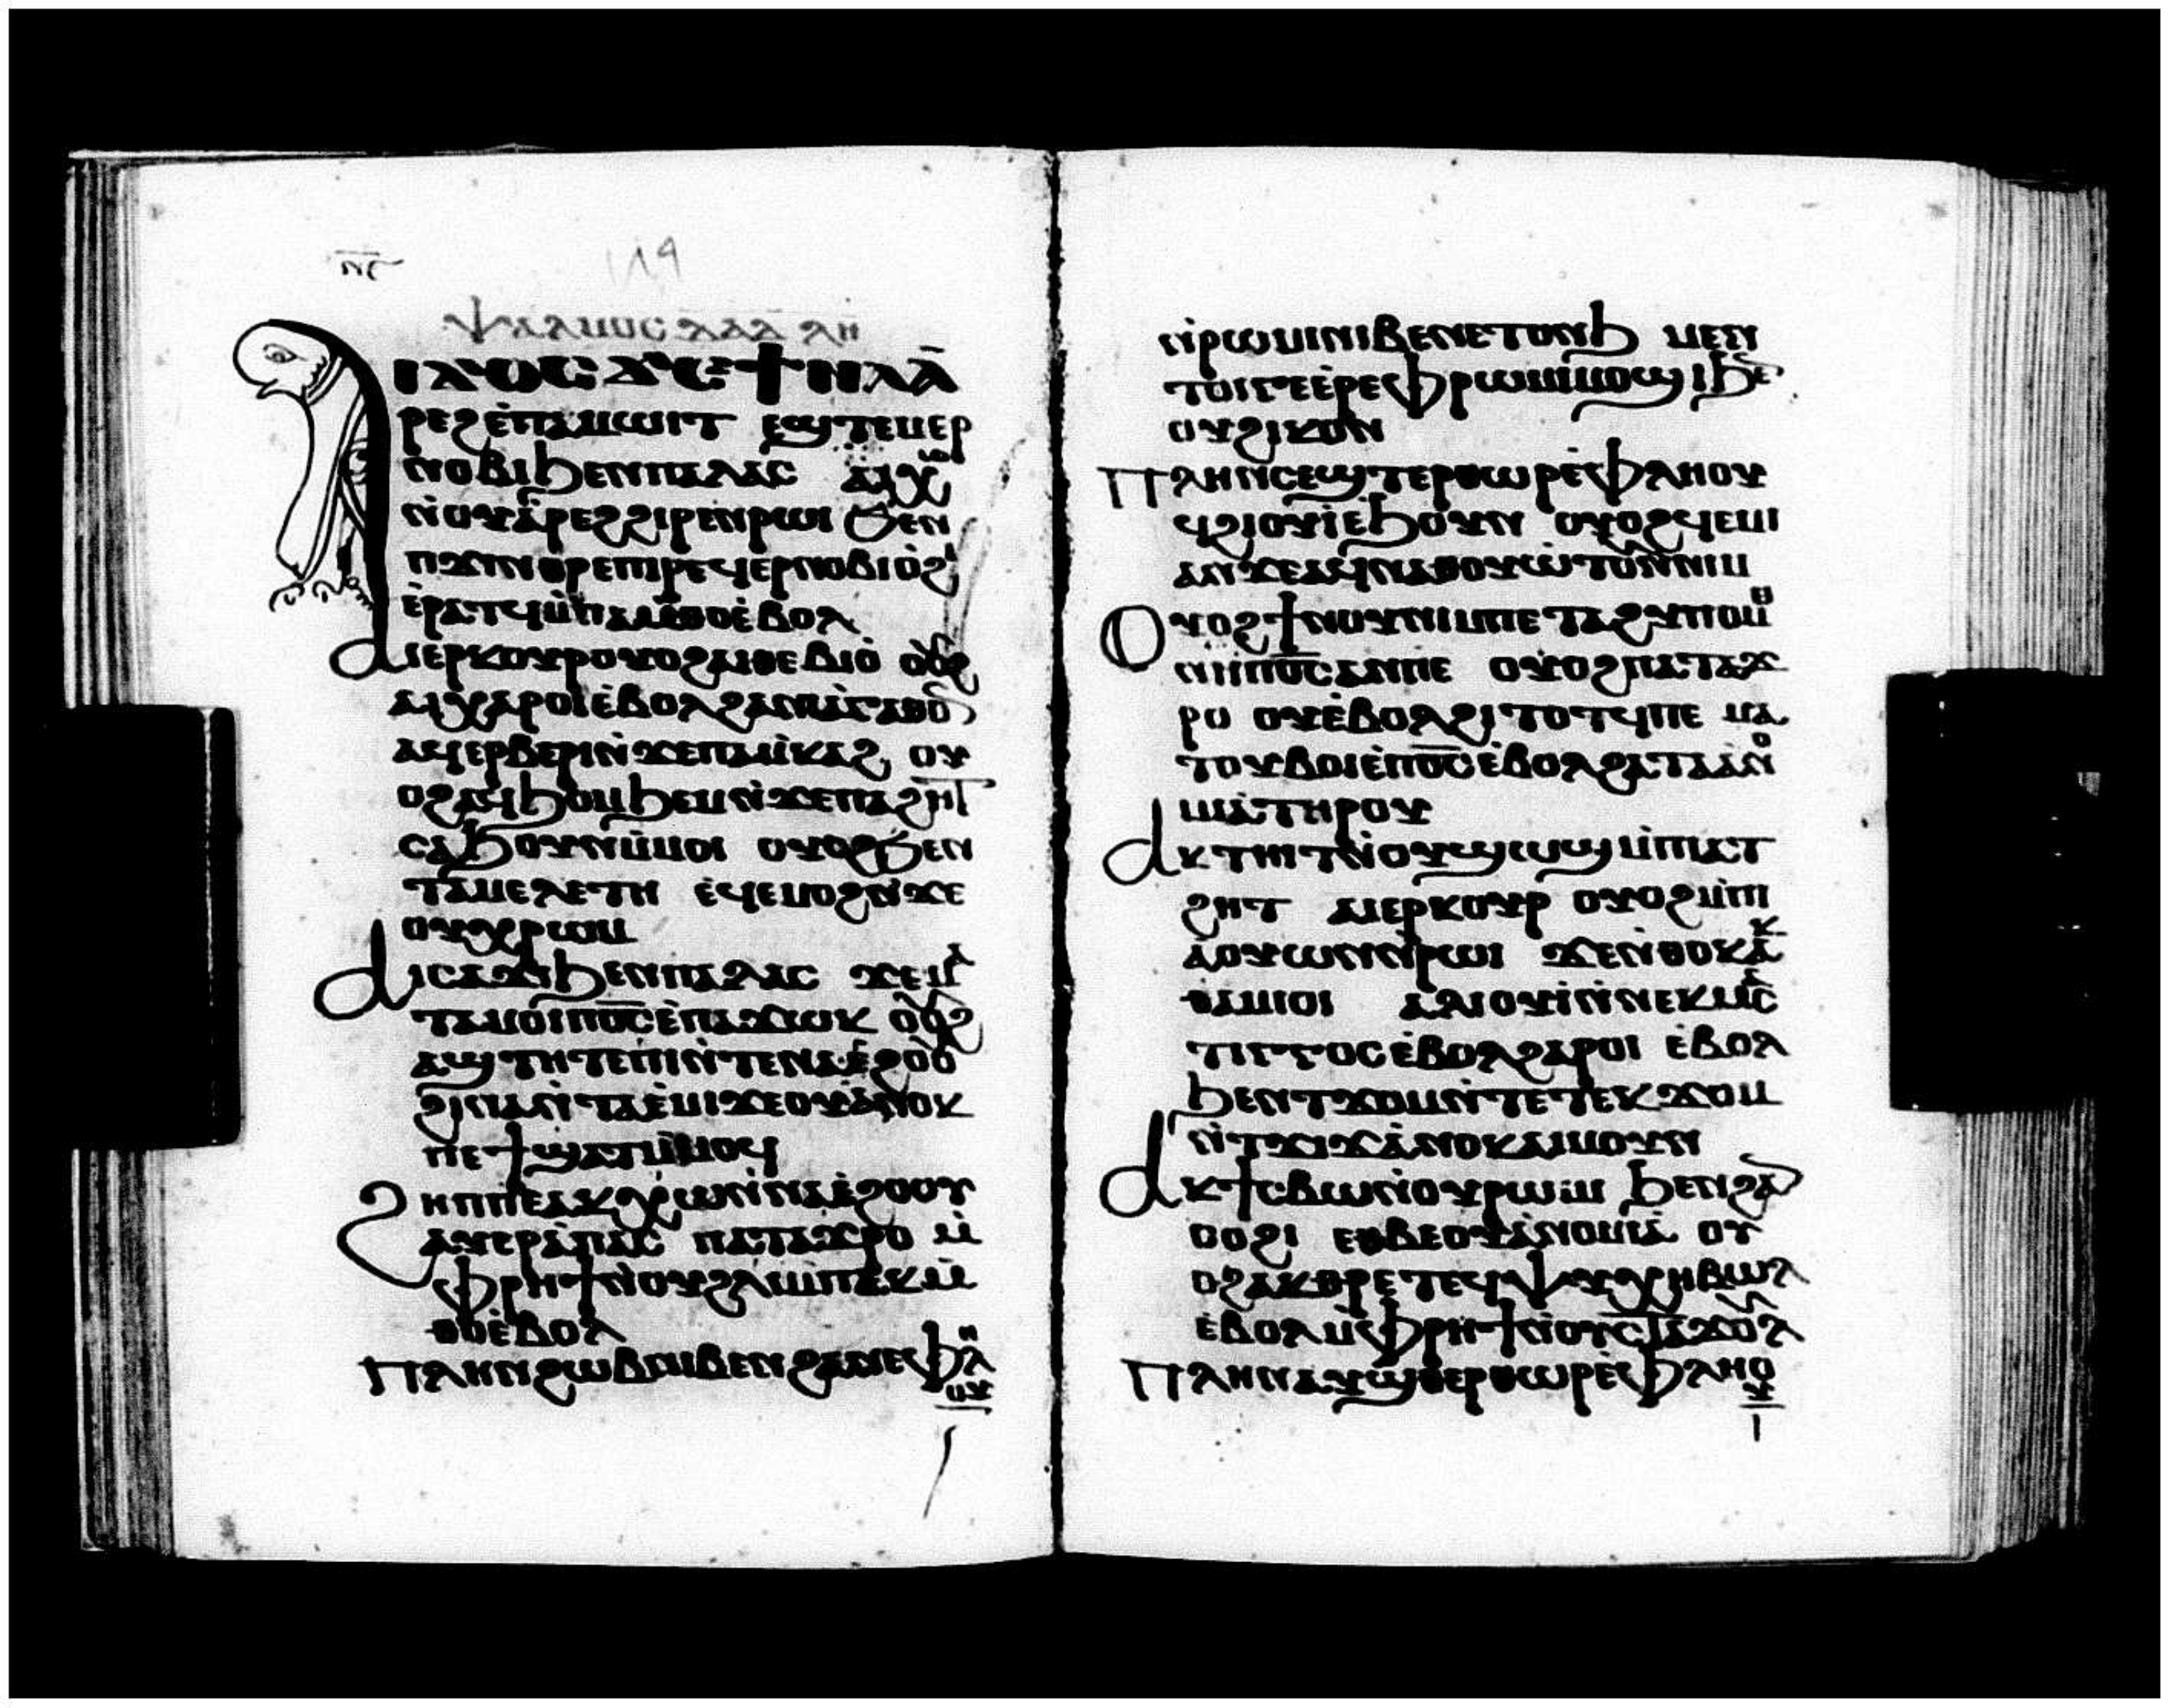 ⲛ︦ⲋ︦
119
ⲯⲁⲗⲙⲟⲥ ⲇⲁⲇ ⲗⲏ
ⲁⲓϫⲟⲥ ϫⲉ ϯⲛⲁⲁ̀
ⲣⲉϩⲉ̀ⲡⲁⲙⲱⲓⲧ ⲉϣⲧⲉⲙⲉⲣ
ⲛⲟⲃⲓϧⲉⲛⲡⲁⲗⲁⲥ ⲁⲓⲭⲱ
ⲛ̀ⲟⲩⲁ̀ⲣⲉϩϩⲓⲣⲉⲛⲣⲱⲓ ϧⲉⲛ
ⲡϫⲓⲛⲑⲣⲉⲡⲓⲣⲉϥⲉⲣⲛⲟⲃⲓⲟ̀ϩⲓ
ⲉ̀ⲣⲁⲧϥⲙ̀ⲡⲁⲙ̀ⲑⲟⲉ̀ⲃⲟⲗ
ⲁⲓⲉⲣⲕⲟⲩⲣⲟⲩⲟϩⲁⲓⲑⲉⲃⲓⲟ̀ ⲟⲩⲟϩ
ⲁⲓⲭⲁⲣⲱⲓⲉ̀ⲃⲟⲗϩⲁⲛⲓⲁ̀ⲅⲁⲑⲟⲛ
ⲁϥⲉⲣⲃⲉⲣⲓⲛ̀ϫⲉⲡⲁⲙ̀ⲕⲁϩ ⲟⲩ
ⲟϩⲁϥϧⲙⲟⲙⲛ̀ϫⲉⲡⲁϩⲏⲧ
ⲥⲁϧⲟⲩⲛⲙ̀ⲙⲟⲓ ⲟⲩⲟϩϧⲉⲛ
ⲧⲁⲙⲉⲗⲉⲧⲏ ⲉϥⲉⲙⲟϩⲛ̀ϫⲉ
ⲟⲩⲭⲣⲱⲙ
ⲁⲓⲥⲁϫⲓϧⲉⲛⲡⲁⲗⲁⲥ ϫⲉⲙⲁ
ⲧⲁⲙⲟⲓⲡⲟ̅ⲥ̅ⲉ̀ⲡⲁϫⲱⲕ ⲟⲩⲟϩ
ⲁϣⲧⲉⲧⲏⲡⲓⲛ̀ⲧⲉⲛⲁⲉ̀ϩⲟⲟⲩ
ϩⲓⲛⲁⲛ̀ⲧⲁⲉ̀ⲙⲓϫⲉⲟⲩⲁ̀ⲛⲟⲕ
ⲡⲉϯϣⲁⲧⲙ̀ⲙⲟϥ
ϩⲏⲡⲡⲉⲁⲕⲭⲱⲛ̀ⲛⲁⲉ̀ϩⲟⲟⲩ
ⲁⲩⲉⲣⲁ̀ⲡⲁⲥ ⲡⲁⲧⲁϫⲣⲟ ⲙ̀
ⲫⲣⲏϯⲛ̀ⲟⲩϩⲗⲓⲙ̀ⲡⲉⲕⲙ̀
ⲑⲟⲉ̀ⲃⲟⲗ
ⲡⲗⲏⲛϩⲱⲃⲛⲓⲃⲉⲛϩⲁⲛⲉⲫⲗⲏ
ⲟⲩ
ⲛ̀ⲣⲱⲙⲓⲛⲓⲃⲉⲛⲉⲧⲟⲛϧ ⲙⲉⲛ
ⲧⲟⲓⲅⲉⲉ̀ⲣⲉⲫⲣⲱⲙⲓⲙⲟϣⲓϧⲉⲛ
ⲟⲩϩⲓⲕⲱⲛ
ⲡⲗⲏⲛⲥⲉϣⲧⲉⲣⲑⲱⲣⲉ̀ⲫⲗⲏⲟⲩ
ϥϩⲓⲟⲩⲓ̀ⲉ̀ϧⲟⲩⲛ ⲟⲩⲟϩϥⲉⲙⲓ
ⲁⲛϫⲉⲁϥⲛⲁⲑⲟⲩⲱⲧⲟⲩⲛ̀ⲛⲓⲙ
ⲟⲩⲟϩϯⲛⲟⲩⲛⲓⲙⲡⲉⲧⲁϩⲩⲡⲟⲙⲟ
ⲛⲏⲡⲟ̅ⲥ̅ⲁⲛⲡⲉ ⲟⲩⲟϩⲡⲁⲧⲁϫ
ⲣⲟ ⲟⲩⲉ̀ⲃⲟⲗϩⲓⲧⲟⲧϥⲡⲉ ⲙⲁ
ⲧⲟⲩⲃⲟⲓⲉ̀ⲡⲟ̅ⲥ̅ⲉ̀ⲃⲟⲗϩⲁⲧⲁⲁ̀ⲛⲟ
ⲙⲓⲁ̀ⲧⲏⲣⲟⲩ
ⲁⲕⲧⲏⲓⲧⲛ̀ⲟⲩϣⲱϣⲙ̀ⲡⲓⲁⲧ
ϩⲏⲧ ⲁⲓⲉⲣⲕⲟⲩⲣ ⲟⲩⲟϩⲙ̀ⲡⲓ
ⲁ̀ⲟⲩⲱⲛⲛ̀ⲣⲱⲓ ϫⲉⲛ̀ⲑⲟⲕⲁⲕ
ⲑⲁⲙⲓⲟⲓ ⲁⲗⲓⲟⲩⲓ̀ⲛ̀ⲛⲉⲕⲙⲁⲥ
ⲧⲓⲅⲅⲟⲥⲉ̀ⲃⲟⲗϩⲁⲣⲟⲓ ⲉ̀ⲃⲟⲗ
ϧⲉⲛⲧϫⲟⲙⲛ̀ⲧⲉⲧⲉⲕϫⲟⲙ
ⲛ̀ⲧϫⲓϫⲁ̀ⲛⲟⲕⲁⲓⲙⲟⲩⲛ
ⲁⲕϯⲥⲃⲱⲛ̀ⲟⲩⲣⲱⲙⲓ ϧⲉⲛϩⲁⲛ
ⲥⲟϩⲓ ⲉⲑⲃⲉⲟⲩⲁ̀ⲛⲟⲙⲓⲁ̀ ⲟⲩ
ⲟϩⲁⲕⲑⲣⲉⲧⲉϥⲯⲩⲭⲏⲃⲱⲗ
ⲉ̀ⲃⲟⲗⲙ̀ⲫⲣⲏϯⲛ̀ⲟⲩⲥⲧⲁϫⲟⲩⲗ
ⲡⲗⲏⲛⲁⲩϣⲑⲉⲣⲑⲱⲣⲉ̀ⲫⲗⲏⲟ
ⲩ